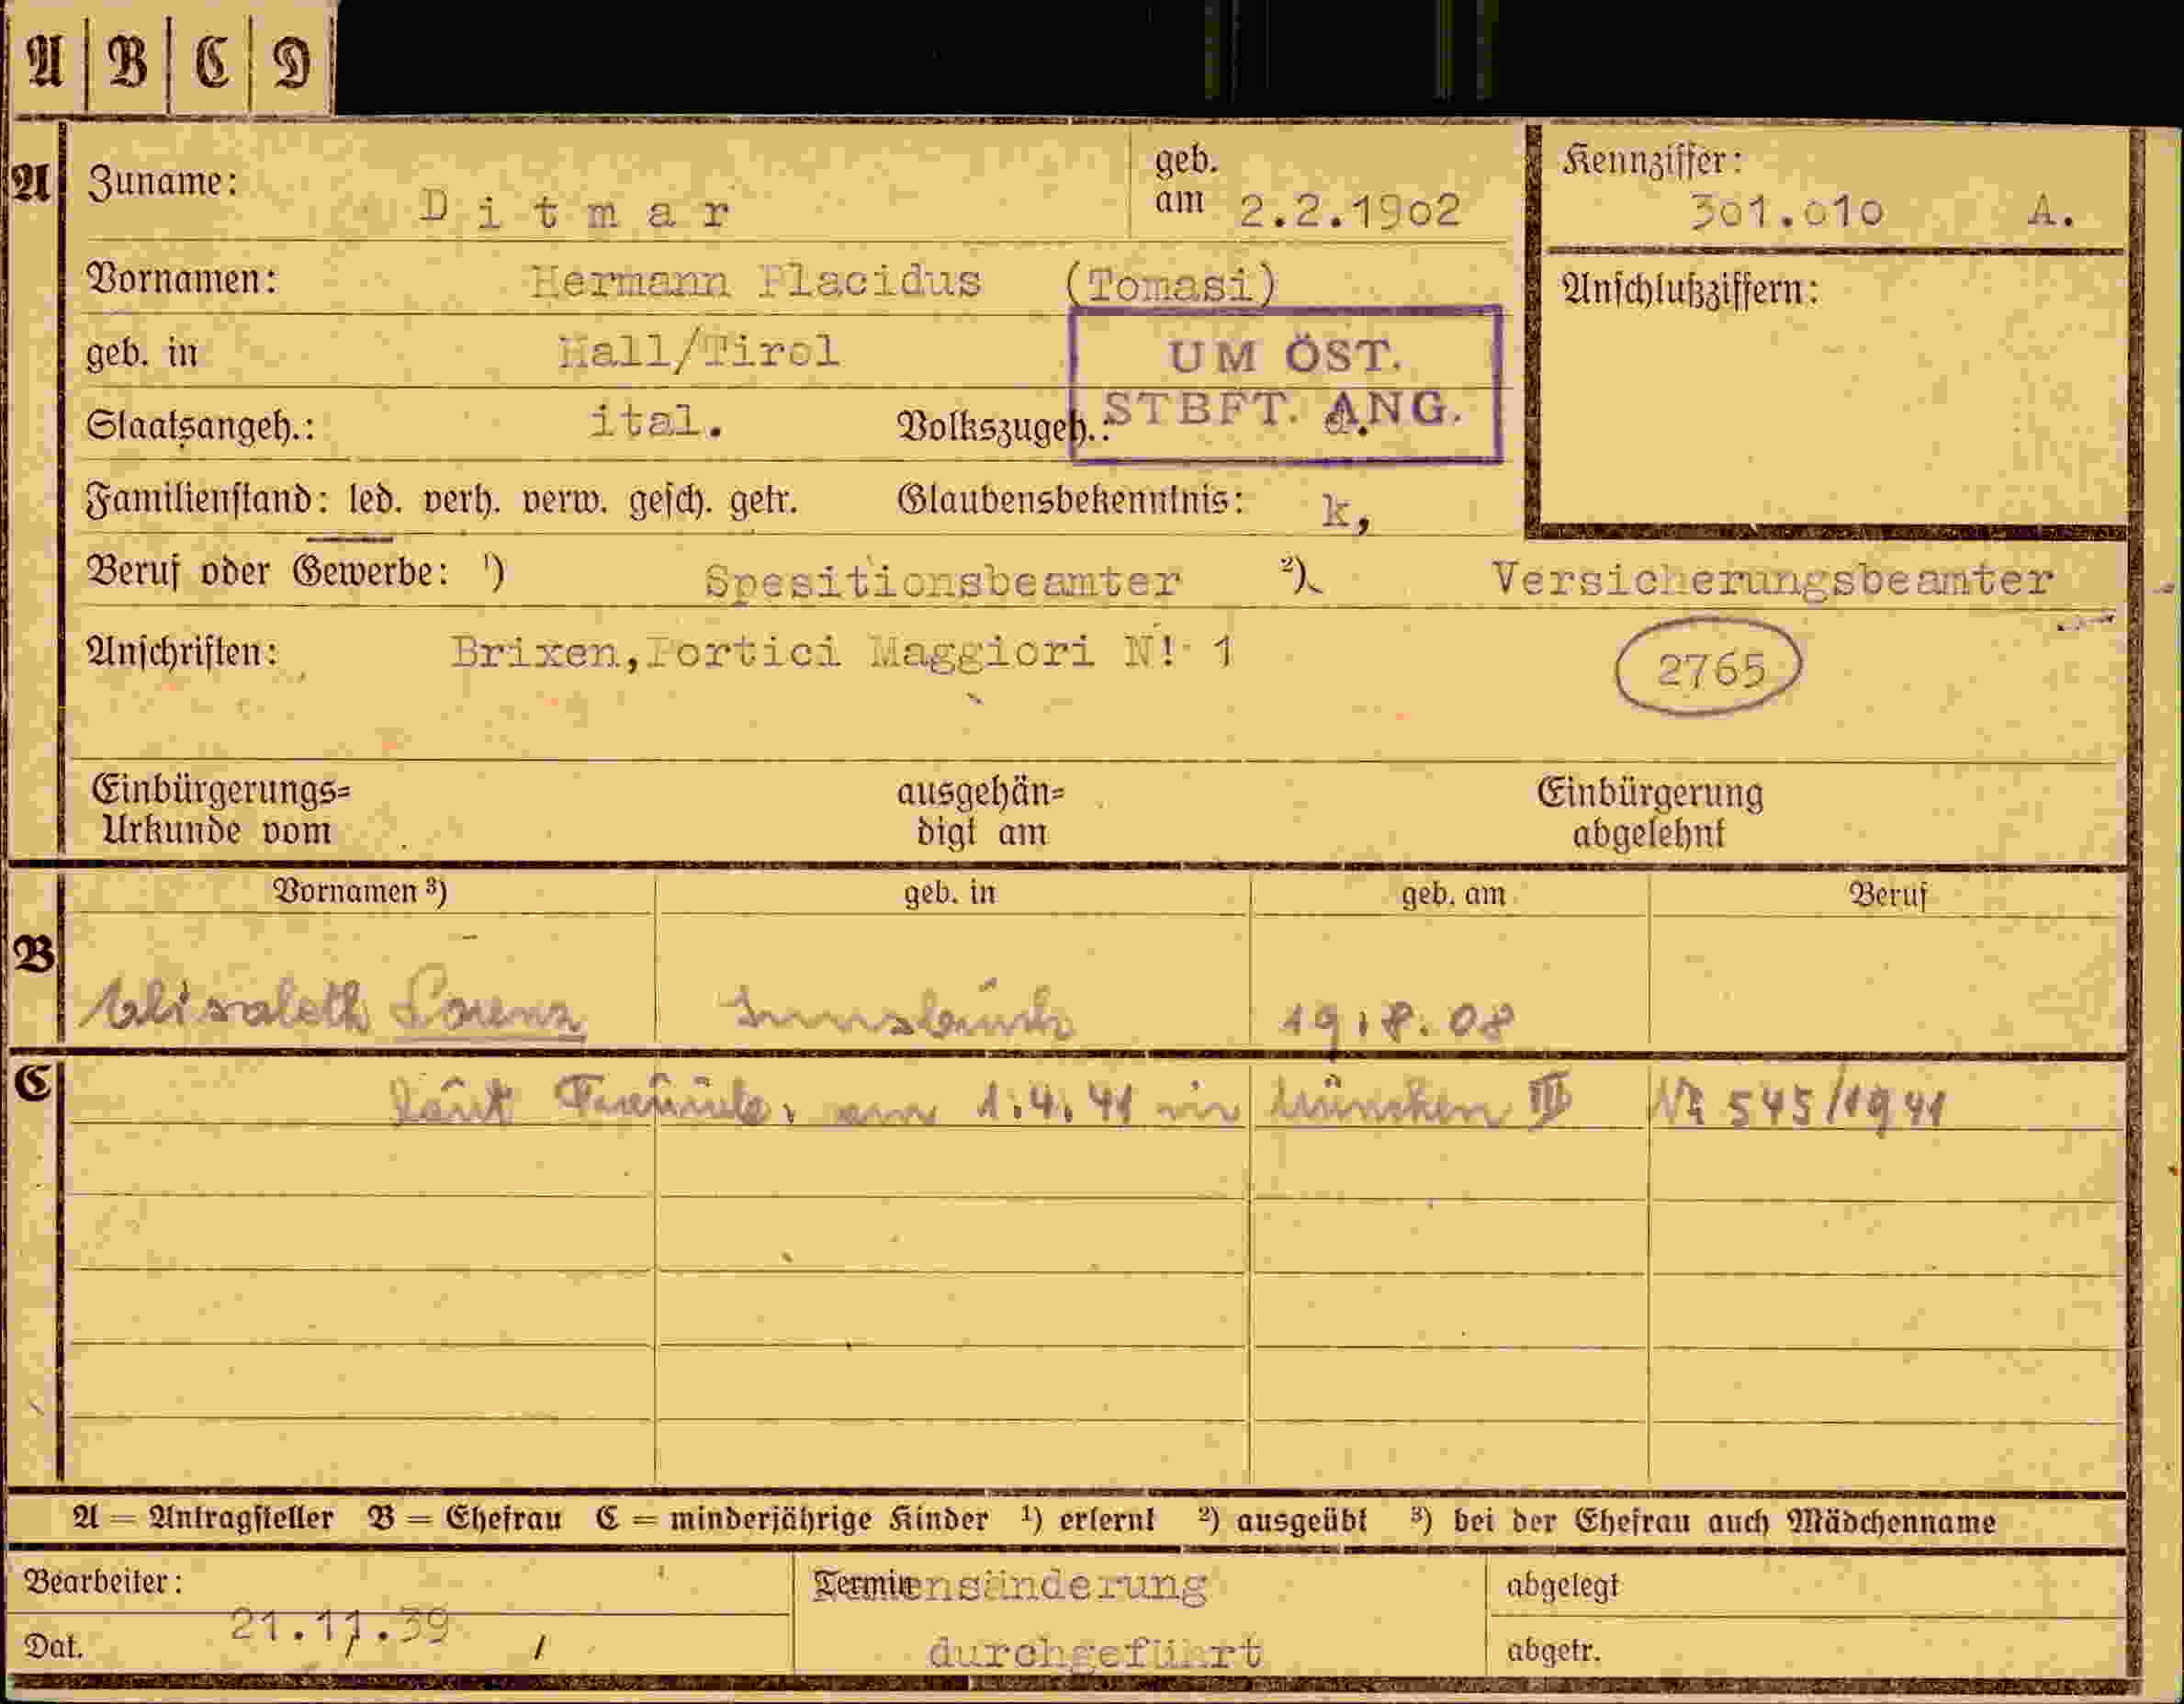 A B C D
A Zuname: Ditmar geb. am 2.2.1902 Kennziffer: 301.010 A.
Vornamen: Hermann Placidus (Tomasi) Anschlußziffern:
geb. in Hall/Tirol UM ÖST.
Staatsangeh.: ital. Volkszugeh.: STBFT. ANG.
Familienstand: led. verh. verw. gesch. getr. Glaubensbekenntnis: k,
Beruf oder Gewerbe: ¹) Spesitionsbeamter ²) Versicherungsbeamter
Anschriften: Brixen,Portici Maggiori N! 1 2765
Einbürgerungs= ausgehän= Einbürgerung
Urkunde vom digt am abgelehnt
Vornamen ³) geb. in geb. am Beruf
B
Elisabeth Lorenz Innsbruck 19.8.08
C laut am 1.4.41 in München III Nr 545/1941
A = Antragsteller B = Ehefrau C = minderjährige Kinder ¹) erlernt ²) ausgeübt ³) bei der Ehefrau auch Mädchenname
Bearbeiter: abgelegt
Dat. 21.11.39 durchgeführt abgetr.